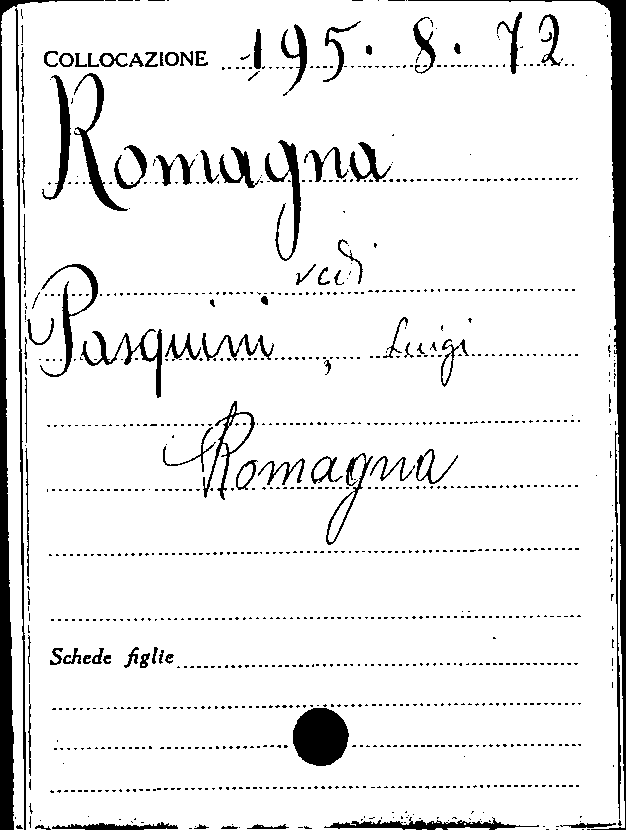 COLLOCAZIONE 195. 8. 72
Romagna
vedi
Pasquini, Luigi
Romagna
Schede figlie